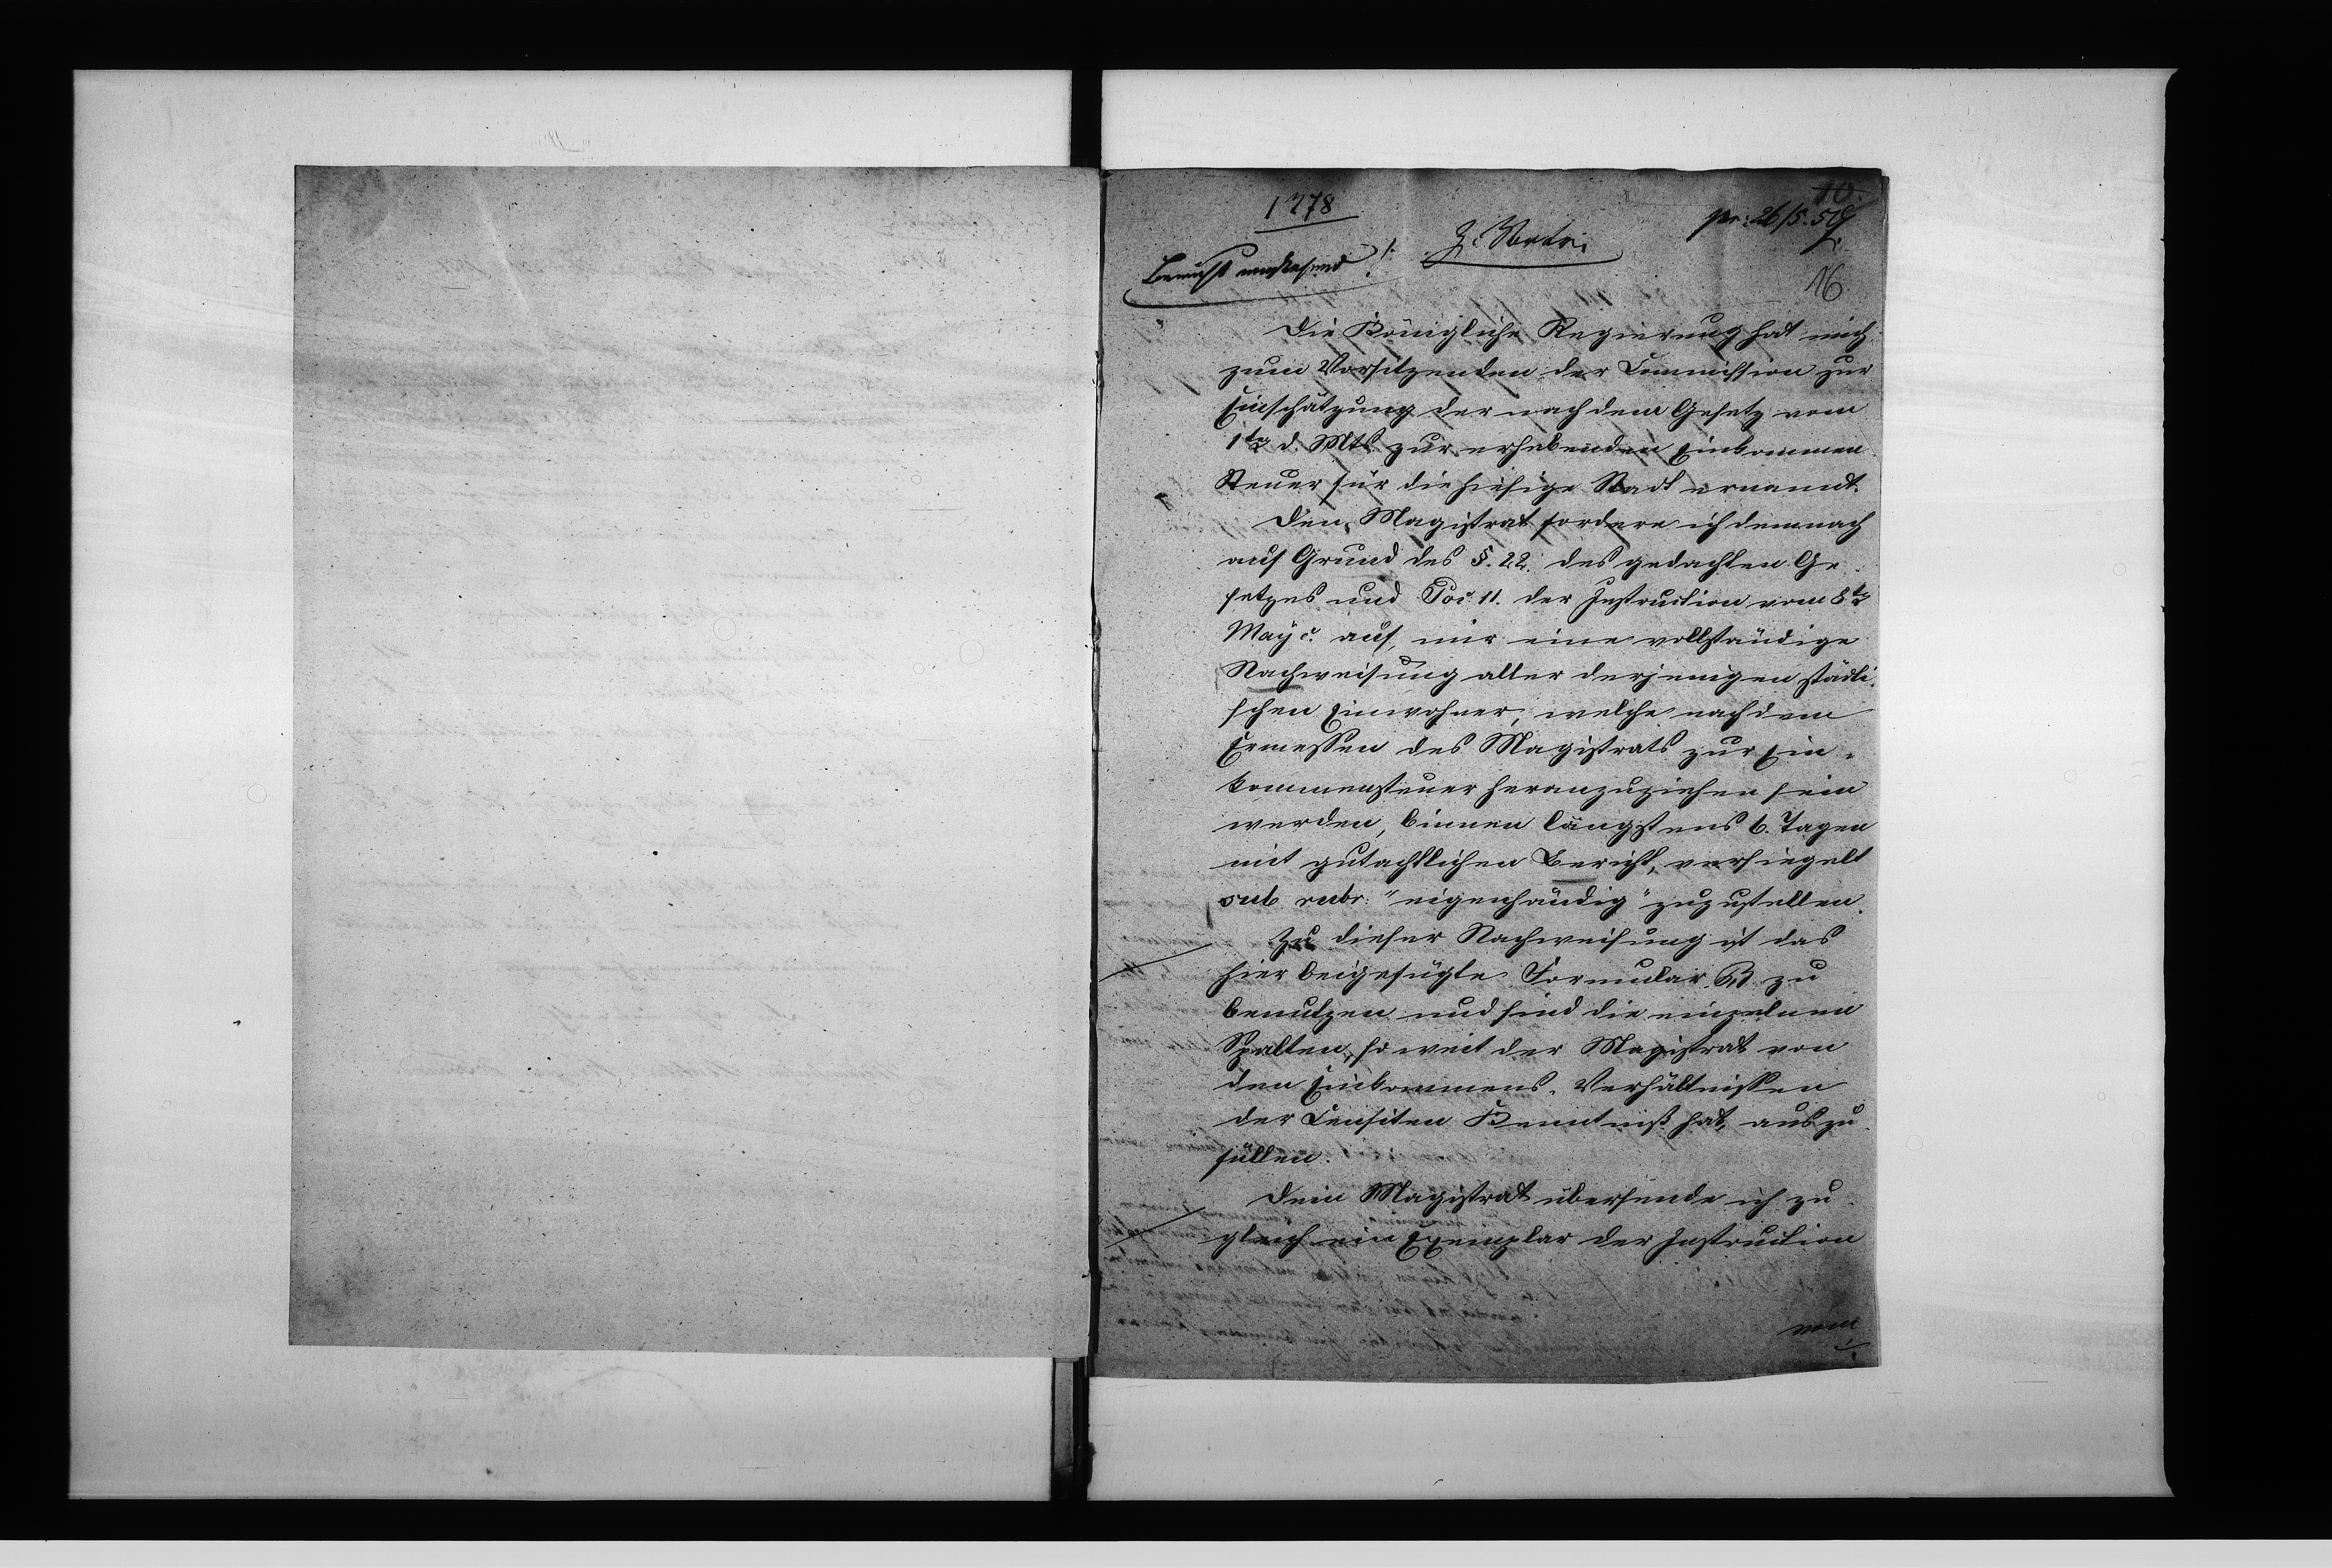 10.
1778
pr: 26/5. 51
Z. Vortr:
Bericht umstehend /.
16
Die Königliche Regierung hat mich
zum Vorsitzenden der Commission zur
Einschätzung der nach dem Gesetz vom
1ten d. Mts. zur erhebenden Einkommen
Steuer für die hiesige Stadt ernannt.
Den Magistrat fordere ich demnach
auf Grund des §. 22. des gedachten Ge
setzes und Pos. 11. der Instruction vom 8ten
May c. auf, mir eine vollständige
Nachweisung aller derjenigen städti
schen Einwohner, welche nach dem
Ermessen des Magistrats zur Ein-
kommensteuer heranzuziehen sein
werden, binnen längstens 6. Tagen
mit gutachtlichen Bericht, versiegelt
sub rubr: "eigenhändig" zuzustellen.
Zu dieser Nachweisung ist das
hier beigefügte Formular B. zu
benutzen und sind die einzelnen
Spalten, so weit der Magistrat von
den Einkommens-Verhältnissen
der Censiten Kenntniß hat, auszu
füllen.
Dem Magistrat übersende ich zu
gleich ein Exemplar der Instruction
vom